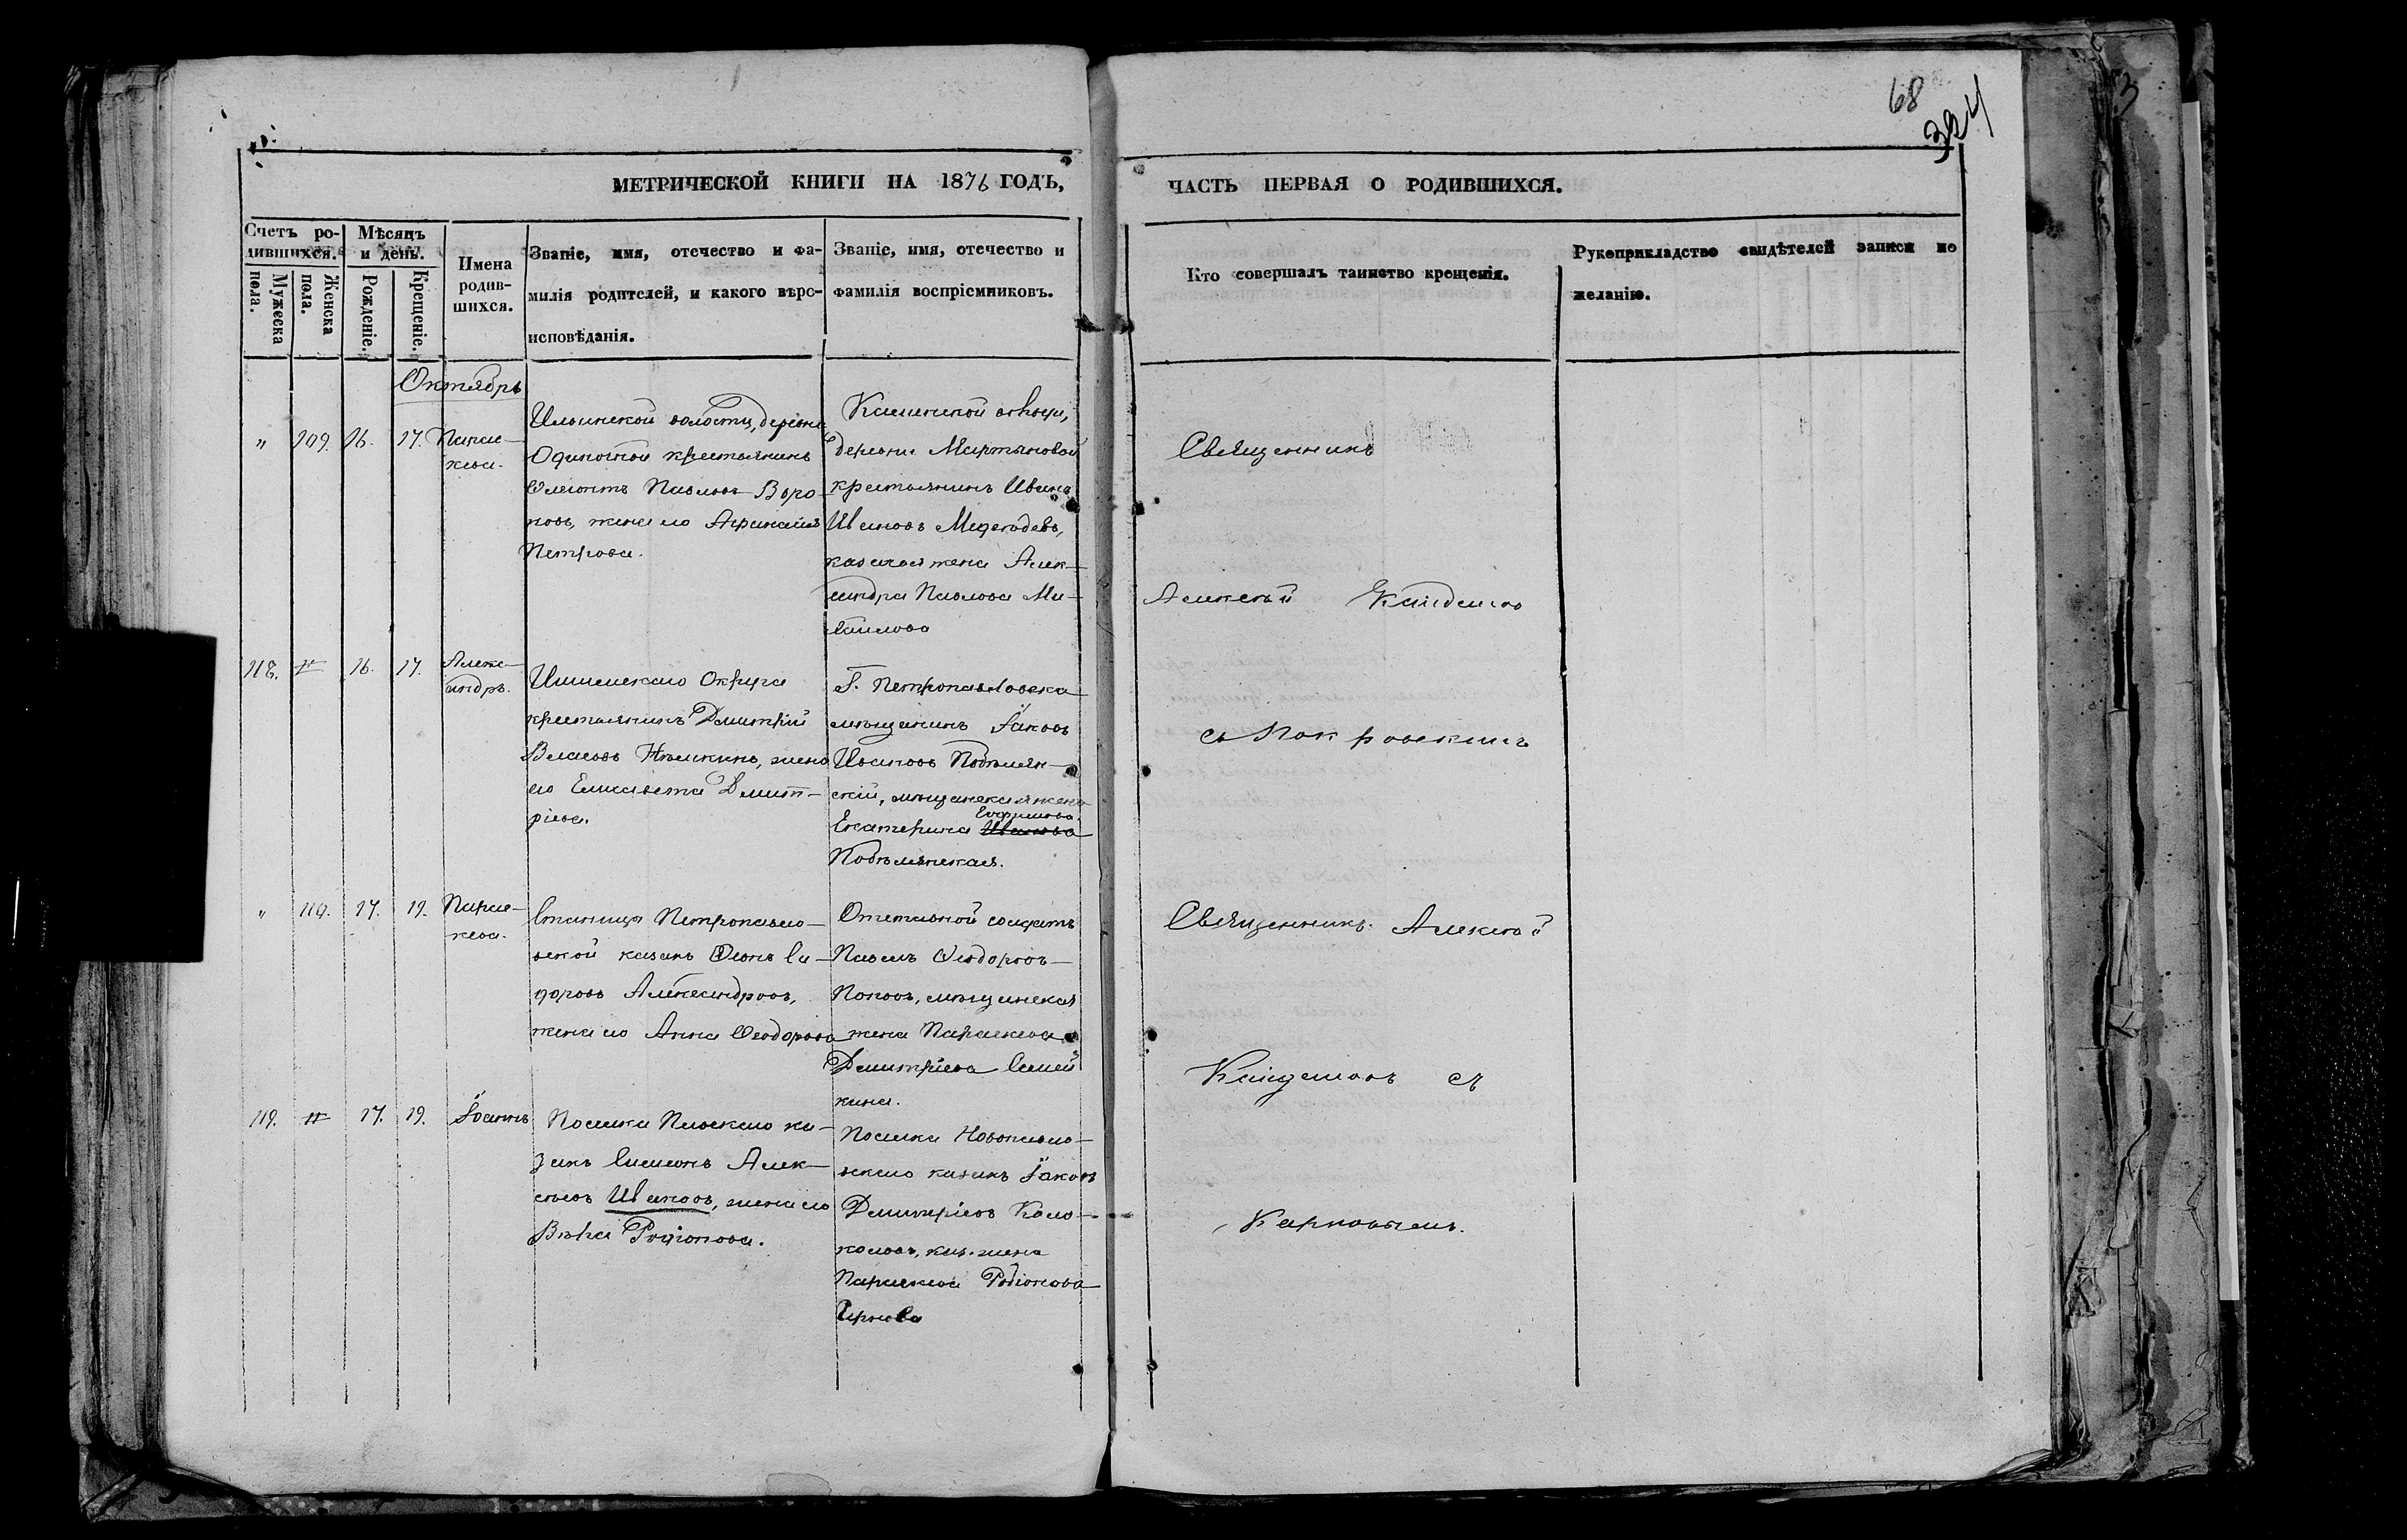 68
324
МЕТРИЧЕСКОЙ КНИГИ НА 1876 ГОДЪ,
ЧАСТЬ ПЕРВАЯ О РОДИВШИХСЯ.
Счетъ ро-
дившихся.
Мужеска
пола.
Женска
пола.
Мѣсяцъ
и день.
Рожденіе.
Крещеніе.
Имена
родив-
шихся.
Званіе, имя, отечество и фа-
милія родителей, и какого вѣро-
исповѣданія.
Званіе, имя, отечество и
фамилія воспріемниковъ.
Кто совершалъ таинство крещенія.
Рукоприкладство свидѣтелей записи по
желанію.
Октябрь
" 109. 16. 17. Парас-
кева.
Ильинской волости, деревни
крестьянинъ
Леонтъ Павловъ
жена его
Петрова.
деревни Мартыновой
крестьянинъ Иванъ
Ивановъ
казачья жена Алек-
сандра Павлова Ми-
хайлова
Священникъ
Алексѣй
съ Покровскимъ
118. " 16. 17. Алекс-
андръ.
Ишимскаго Округа
крестьянинъ Дмитрій
Власовъ жена
его Елисавета Дмит-
ріева.
Г. Петропавловска
мѣщанинъ Іаковъ
Ивановъ
скій, мѣщанская жена
Ефимова
Екатерина Иванова
" 110. 17. 19. Парас-
кева.
Станицы Петропавло-
вской казакъ Си-
доровъ Александровъ,
жена его Анна Ѳеодорова
Отставной солдатъ
Павелъ Ѳеодоровъ
Поповъ, мѣщанская
жена Параскева
Дмитріева Семей
кина.
Священникъ Алексѣй
съ
Карповымъ.
119. " 17. 19. Іоаннъ
Поселка ка-
закъ Симеонъ Алек-
сѣевъ Ивановъ, жена его
Вѣра Родіонова.
Поселка Новопавло-
вскаго казакъ Іаковъ
Дмитріевъ Коло-
коловъ, каз. жена
Параскева Родіонова